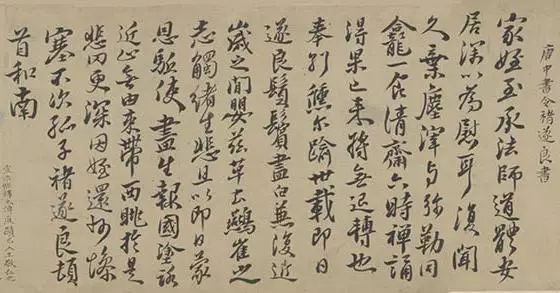 唐中書令褚遂良書
家姪至承法師道體安
居深以為慰耳復聞
久棄塵滓与弥勒同
龕一食清齋六時禪誦
得果已來將無退轉也
奉別倏尔踰卅載即日
遂良鬚鬢盡白兼復近
歲之間嬰茲草土鷰雀之
志觸緒生悲且以即日蒙
恩駈使盡生報國塗路
近止無由束帶西眺於是
悲罔更深因姪還州慘
塞不次孤子褚遂良頓
首和南